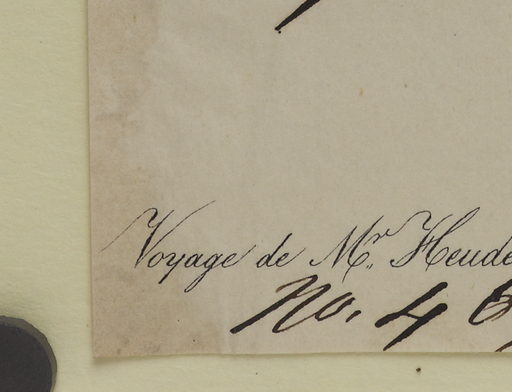 Voyage de Mr. Heude
No. 4